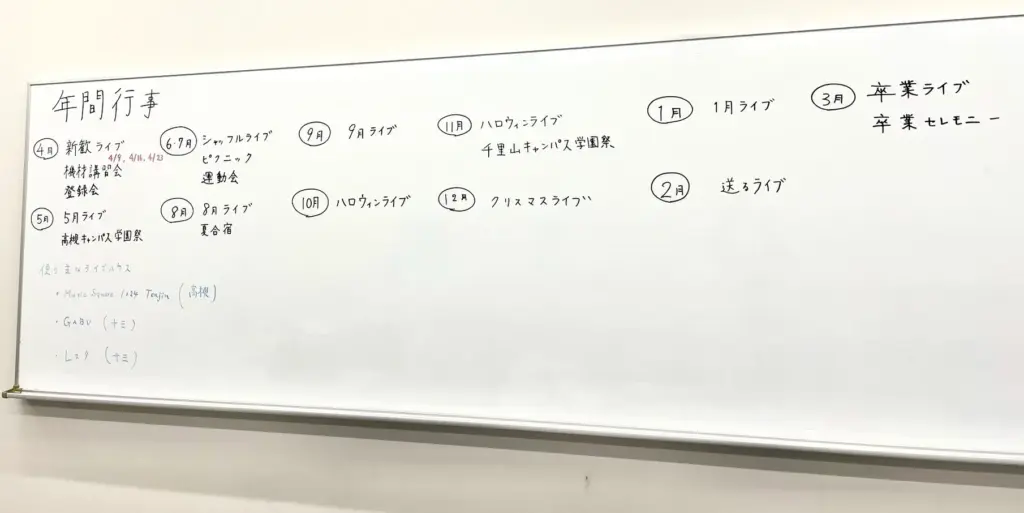 年間行事
4月 新歓ライブ
4/9, 4/16, 4/23
機材講習会
登録会
5月 5月ライブ
高槻キャンパス学園祭
6・7月 シャッフルライブ
ピクニック
運動会
8月 8月ライブ
夏合宿
9月 9月ライブ
10月 ハロウィンライブ
11月 ハロウィンライブ
千里山キャンパス学園祭
12月 クリスマスライブ
1月 1月ライブ
2月 送るライブ
3月 卒業ライブ
卒業セレモニー
使う主なライブハウス
・Music Square 1624 Tenjin (高槻)
・GABU (十三)
・(十三)